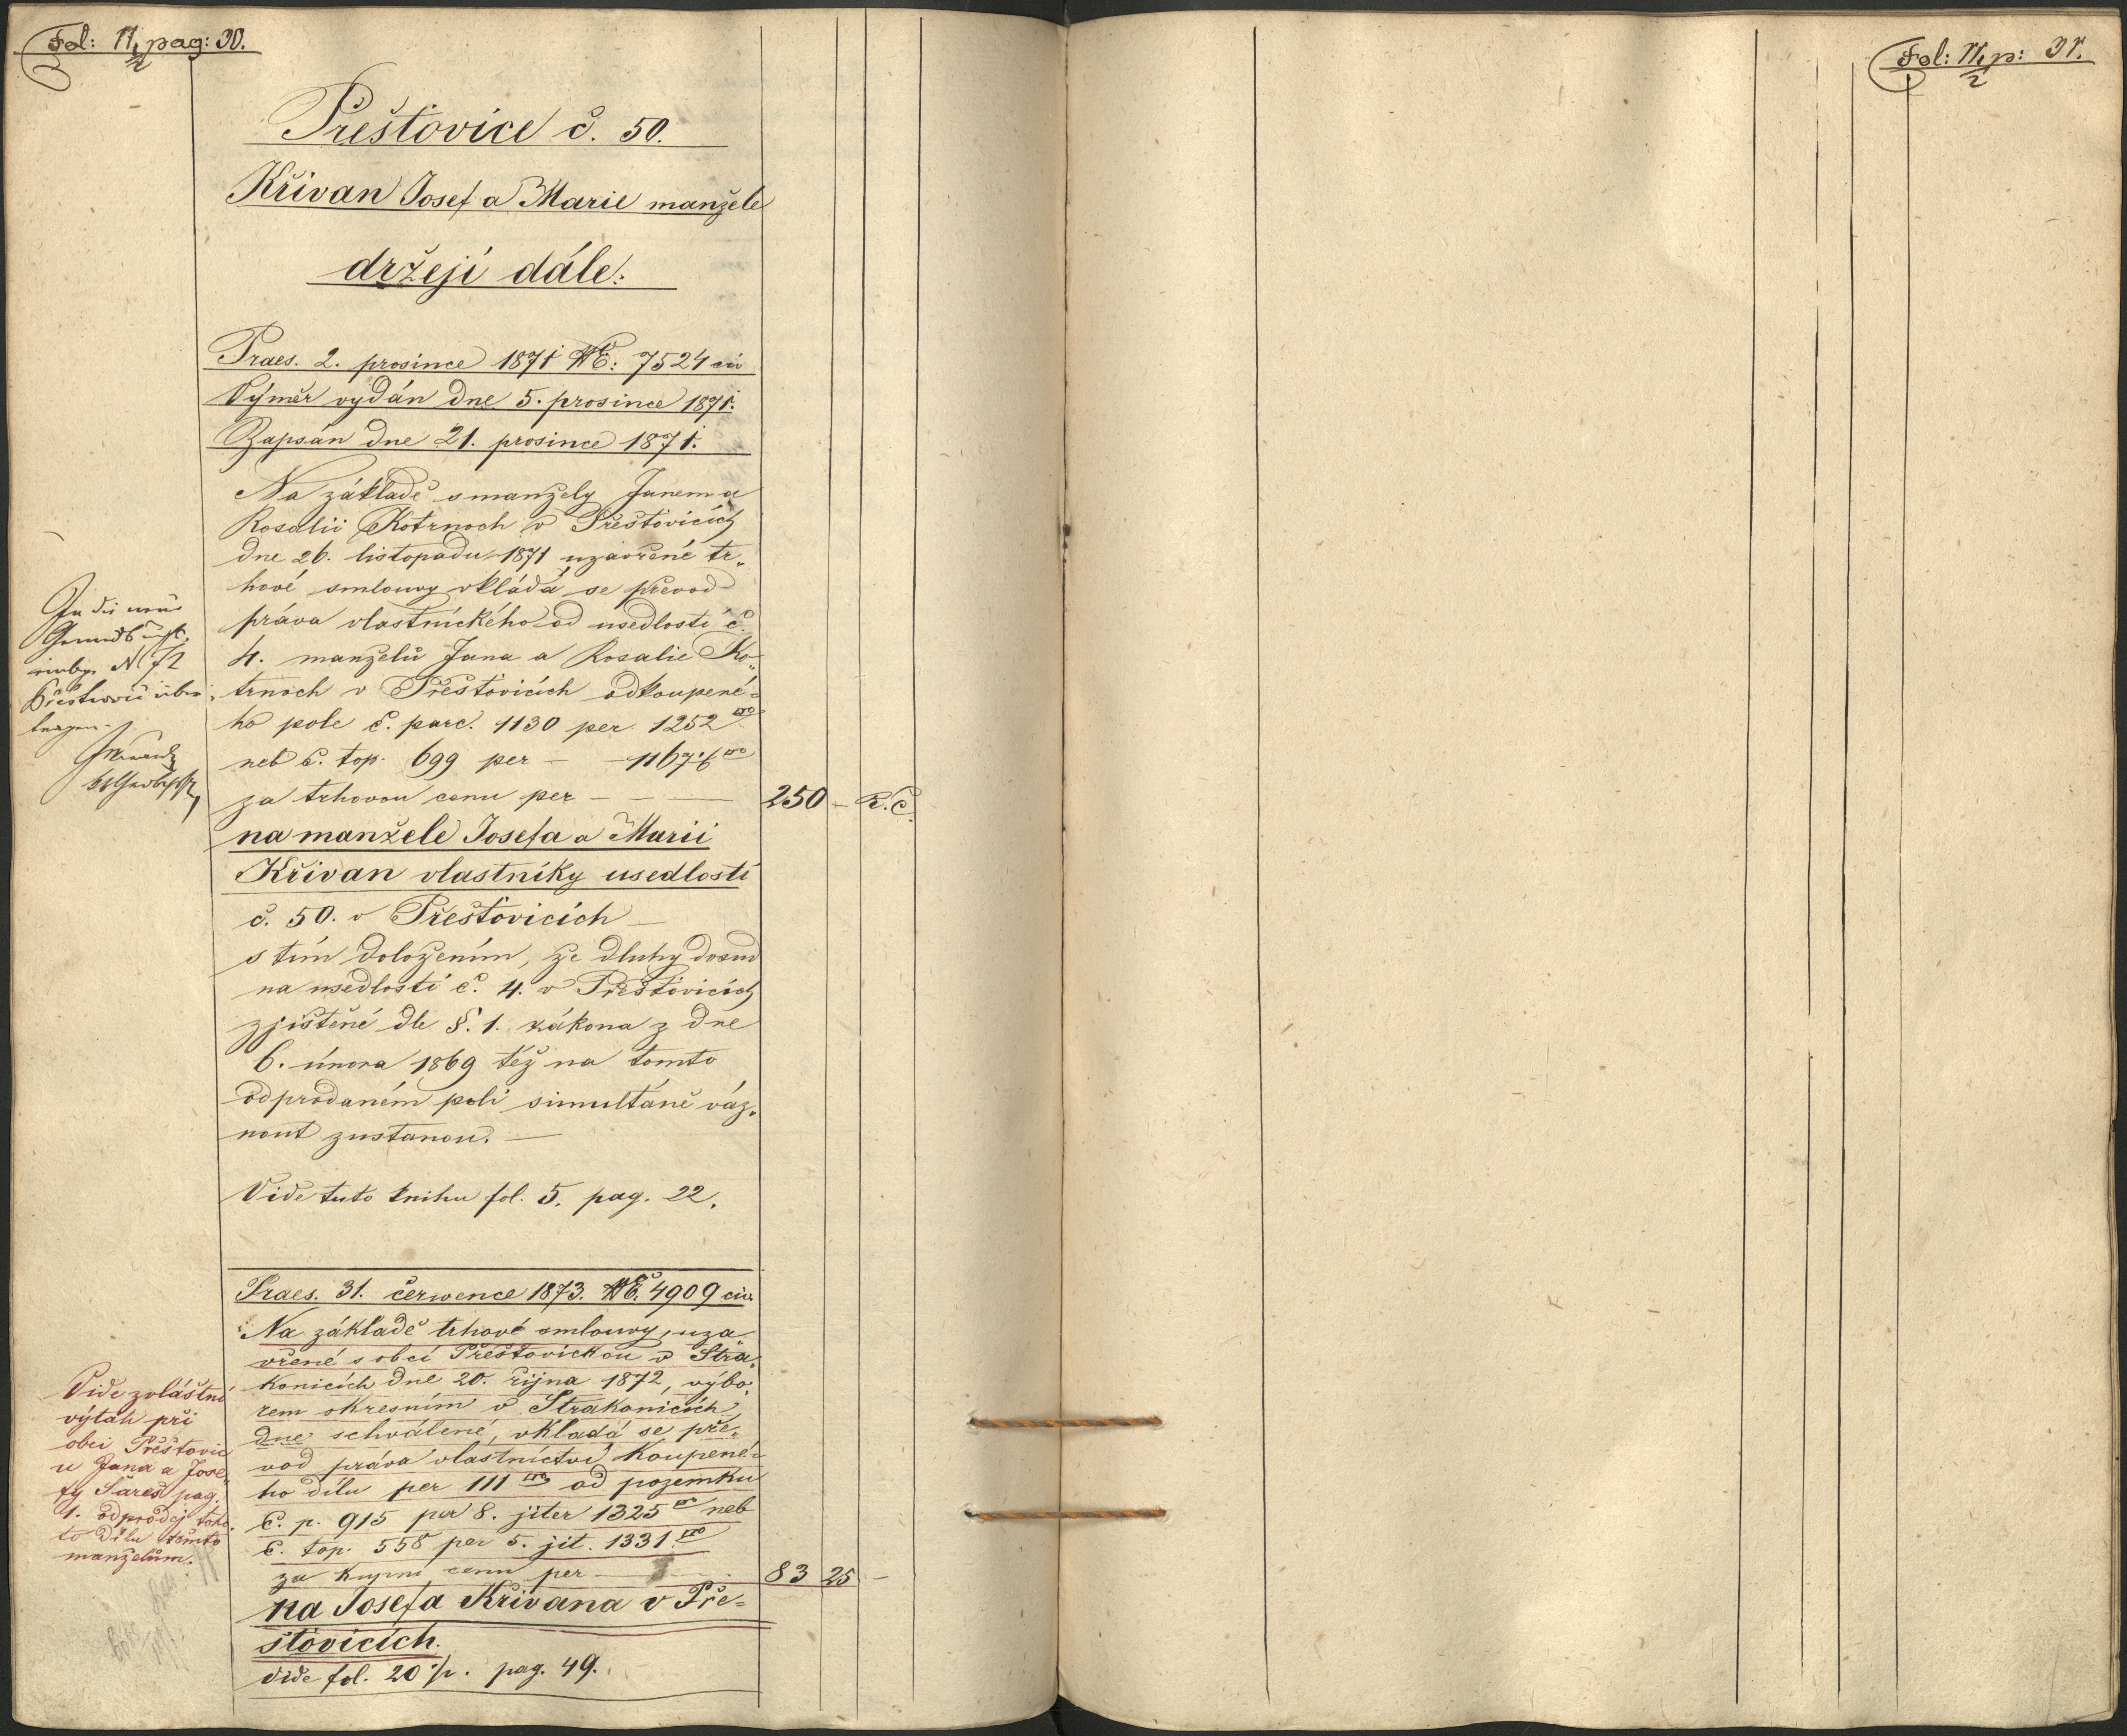 Fol: 11/2 pag: 30.
Přešťovice č. 50.
Křivan Josef a Marie manželé
držejí dále:
Praes. 2. prosince 1871 № E: 7524 civ
Výměr vydán dne 5. prosince 1871.
Zapsán dne 21. prosince 1871.
Na základě s manžely Janem a
Rosalii Kotrnoch v Přešťovicích
dne 26. listopadu 1871 uzavřené tr„
hové smlouvy vkládá se převod
práva vlastnického od usedlosti č.
4. manželů Jana a Rosalie Ko„
trnoch v Přešťovicích odkoupené=
ho pole č. parc. 1130 per 1252 □°
neb č. top. 699 per — — 1167·6 □°
za trhovou cenu per — — — 250 — R. Č.
na manžele Josefa a Marii
Křivan vlastníky usedlosti
č. 50. v Přešťovicích —
s tím doložením, že dluhy dosud
na usedlosti č. 4. v Přešťovicích
zjištěné dle §. 1. zákona z dne
6. února 1869 též na tomto
odprodaném poli simultáně váz„
nout zustanou. —
Vide tuto knihu fol. 5. pag. 22.
In die neue
Grundb
N 72
Přestowic über
tragen
Praes. 31. července 1873. № E. 4909 civ.
Na základě trhové smlouvy, uza„
vřené s obcí Přešťovickou v Stra„
konicích dne 20. října 1872, výbo„
rem okresním v Strakonicích
dne schválené, vkladá se pře„
vod práva vlastnictví koupené=
ho dílu per 111 □° od pozemku
č. p. 915 per 8. jiter 1325 □° neb
č. top. 558 per 5. jit. 1331 □°
za kupní cenu per — — 83 25 —
na Josefa Křivana v Pře=
šťovicích.
vide fol. 20 1/2. pag. 49.
Vide zvláštní
výtah při
obci Přešťovic
u Jana a Jose„
fy Sareš pag.
1. odprodej toho„
to dílu těmto
manželům.
Fol: 11/2 p: 31.